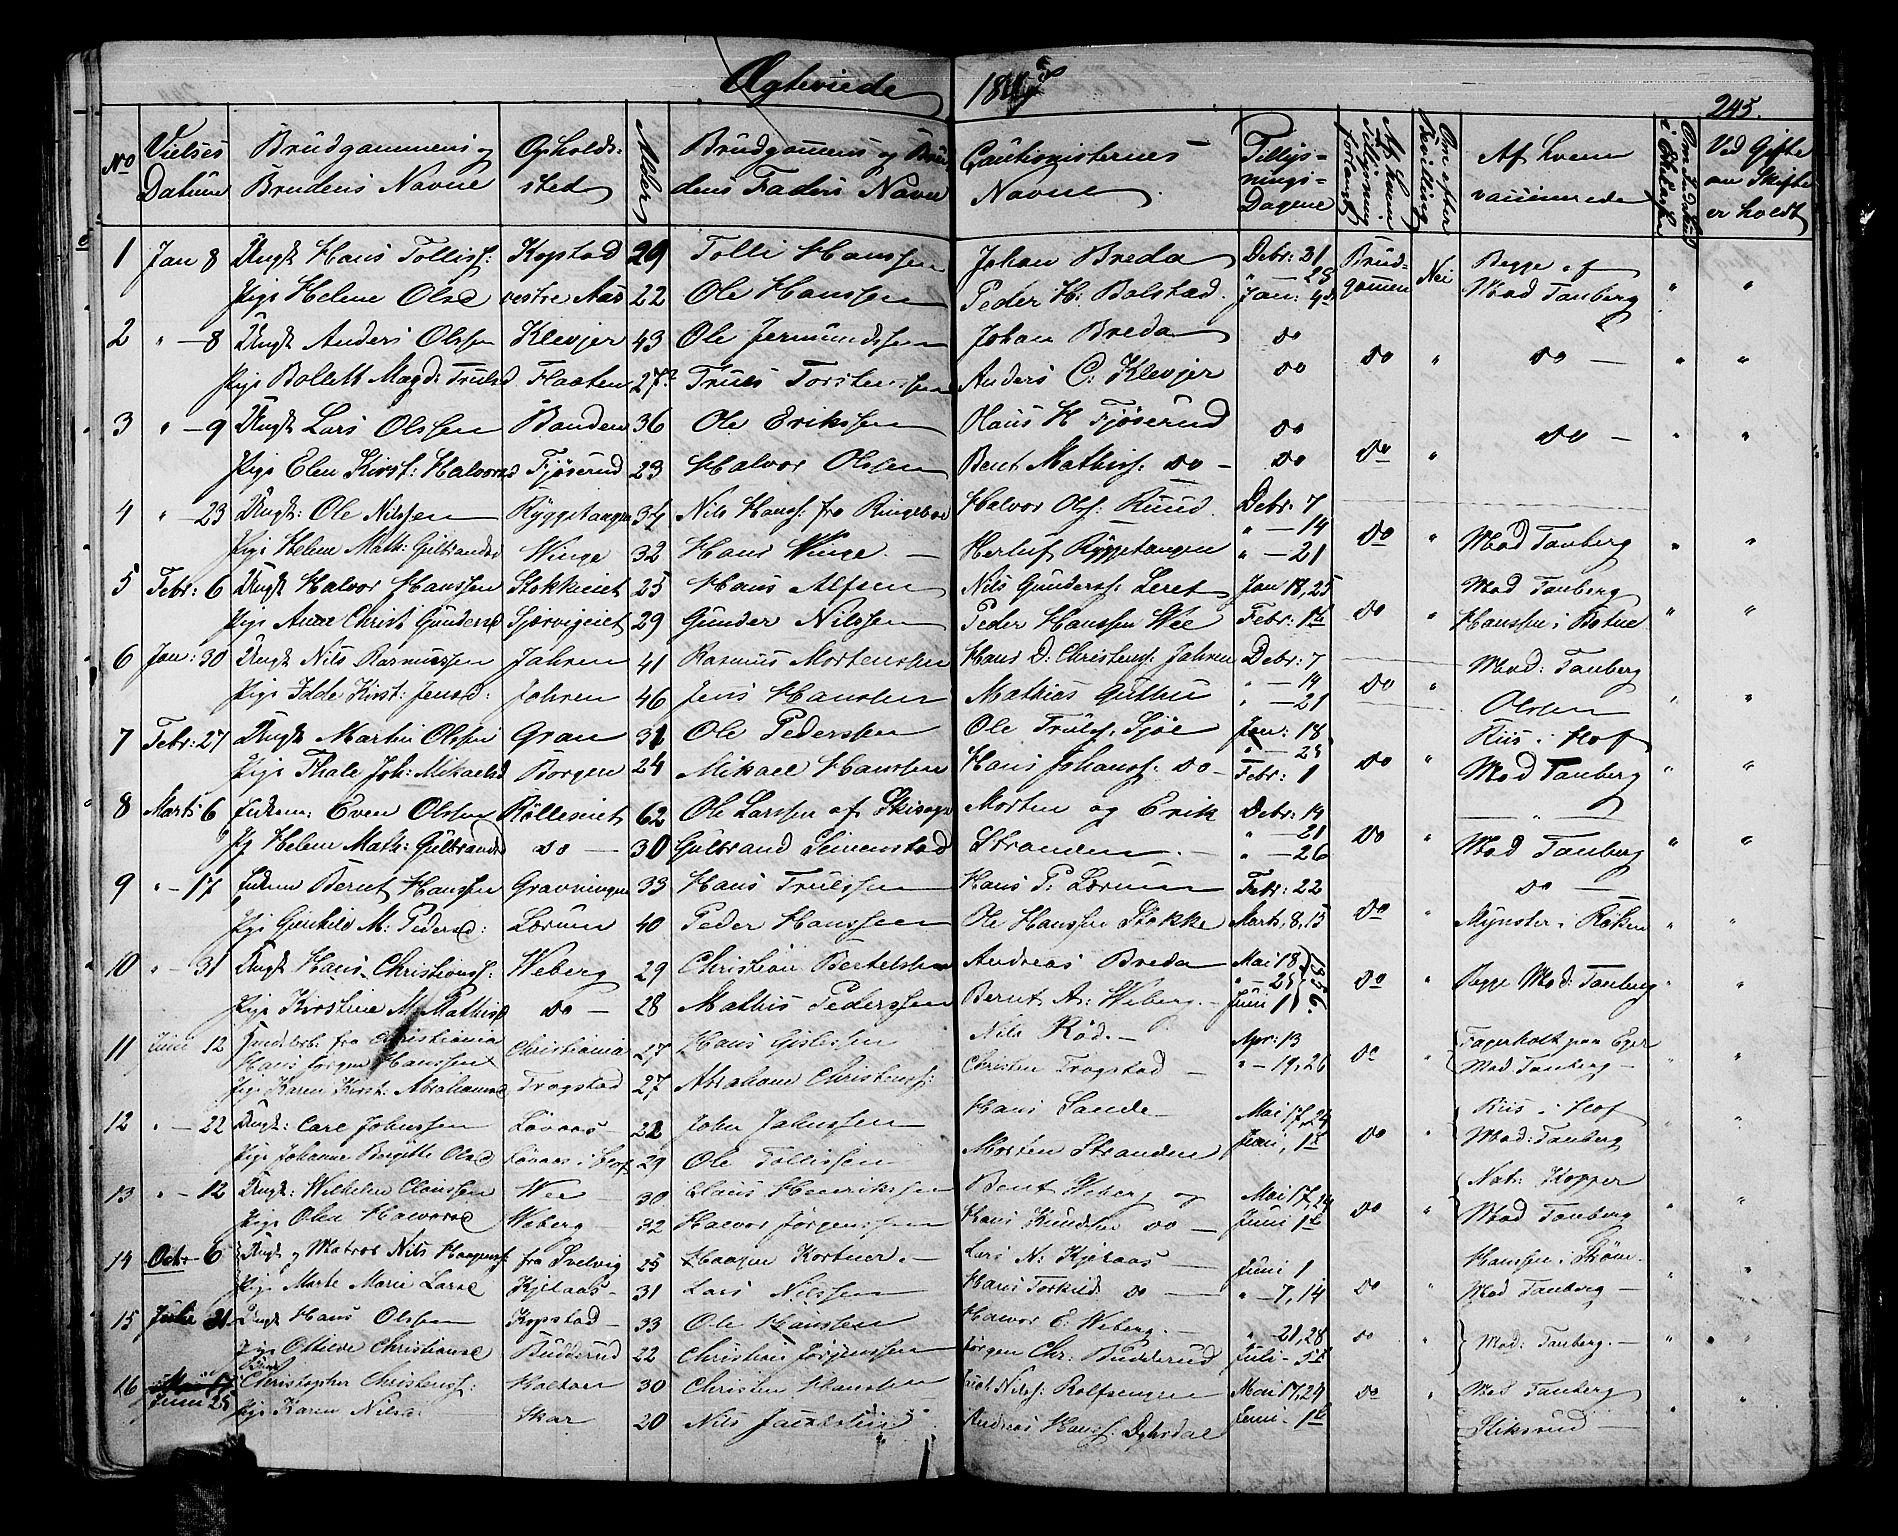 Ægteviede
18
245.
No
Vielses Datum
Brudgommens og Brudens Navne
Opholds: sted
Alder
Brudgommens og Brudens Faders Navne
Cautionisternes Navne
Tillys- nings- Dagene
Af hvem Tillysning forlangt
Om efter Bevilling
Af hvem vaccinerede
Ved Gifte om Skifte er holdt
1 Jan 8 Ungk Hans Tolliss: Kopstad 29 Tolli Hanssen Johan Breda Debr: 31 Brud- Nei Begge af
Pige Helene Olsd vestre Aas 22 Ole Hanssen Peder H: Bolstad. Jan: 4de gommen Mad Tanberg " "
2 " - 8 Ungk Anders Olssen Klevjer 43 Ole Jermundssen Johan Breda do
Pige Bollett Magd: Trulsd Flaaten 27 Truls Torstenssen Anders C: Klevjer do do " do - " "
3 " - 9 Ungk Lars Olssen Banden 36 Ole Erikssen Hans H Fjøserud do do -
Pige Elen Kirst: Halvorsd Fjøserud 23 Halvor Olssen Bent Mathiss: do - do do " " "
4 " 23 Ungk: Ole Nilssen Ryggetangen 34 Nils Hanss: fra Ringeboe Halvor Olss: Ruud Debr: 7
" - 14
Pige Helene Math: Gulbrandsd Winge 32 Hans Winge - Herluf Ryggetangen " - 21 do " Mad Tanberg " "
5 Febr: 6 Ungk Halvor Hanssen Stokkeiet 25 Hans Alfsen Nils Gunderss: Leret Jan 18, 25 Mad Tanberg
Pige Anne Christ Gundersd Sjørvigeiet 29 Gunder Nilssen Peder Hanssen Wee Febr: 1te do " Hanssen i Botne " "
6 Jan: 30 Ungk Nils Rasmussen Jahren 41 Rasmus Mortenssen Hans D: Christenss: Jahren Debr: 7 Mad: Tanberg
" - 14
Pige Idde Kirst: Jensd: Jahren 46 Jens Hanssen Mathias Guthu " - 21 do " Olssen " "
7 Febr: 27 Ungk Martin Olssen Gran 31 Ole Pederssen Ole Trulss. Sjøe Jan: 18 Riis i Hof
" - 25
Pige Thale Joh: Mikaelsd Borgen 24 Mikael Hanssen Hans Johanss: do - Febr: 1 do " Mad Tanberg " "
8 Marts 6 Enkem: Even Olssen Rölleseiet 62 Ole Larssen af Morten og Erik Debr: 14
" - 21
Pg Helene Math: Gulbrandsd do - 30 Gulbrand Simenstad Stranden - " - 26 do " Mad Tanberg " "
9 " - 17 Enkem Bernt Hanssen Gravningen 33 Hans Trulssen Hans P: Lørum Febr: 22 do -
Pige Gunhild M: Pedersd: Lørum 40 Peder Hanssen Ole Hanssen Stokke Marts, 8, 15 do " Mynster i Røken " "
10 " - 31 Ungk Hans Christianss: Weberg 29 Christian Bertelssen Andreas Breda Mai 18
" - 25
Pige Kirstine M Mathisd do - 28 Mathis Pederssen Bernt A: Weberg - Juni 1 do " Begge Mad: Tanberg " "
11 Juni 12 fra Christiania
Hans Jørgen Hanssen Christiania 27 Hans Nils Rød. - Apr: 13 Fagerholt paa Eger
Pige Karen Kirst: Abrahamsd Trogstad 27 Abraham Christenss: Christen Trogstad - " - 19, 26 do " Mad Tanberg - "
12 " - 22 Ungk: Carl Johnssen Løvaas 22 John Johnssen Hans Sande - Mai 17, 24 Riis i Hof
Pige Johanne Birgitte Olsd Løvaas i 29 Ole Tollissen Morten Stranden Juni, 1te do " Mad: Tanberg "
13 " - 12 Ungk: Wilhelm Claussen Wee 30 Claus Henrikssen Bent Weberg og Mai 17, 24 Nat: Kopper
Pige Olea Halvorsd Weberg - 32 Halvor Jørgenssen Hans Knudsen do - Juni 1te do " Mad Tanberg "
14 Octr 6 Ungk og Matros Nils Haagenss: fra Svelvig 25 Haagen Kortner. - Lars N: Kjelaas - Juni 1 Hanssen i Strøm
Pige Marte Marie Larsd Kjelaas - 31 Lars Nilssen Hans Torkild: do - " - 7, 14 do " Mad Tanberg - "
15 Julie 31 Ungk Hans Olssen Kopstad - 33 Ole Hanssen Halvor E: Weberg. - " - 21, 28
Pige Otilde Christiansd Budderud 22 Christian Jørgenssen Jørgen Chr: Budderud Juli - 5te do " Mad: Tanberg. - " "
16 Mai 17 Christopher Christenss: Holtan 30 Christen Hanssen Jacob Nilss: Rolfsengen Mai 17, 24 do " Mad Tanberg
Juni 25 Pige Karen Nilsd Skar 20 Nils Jacobssen Andreas Hanss: Dybsdal Juni - 1te Stiksrud - "